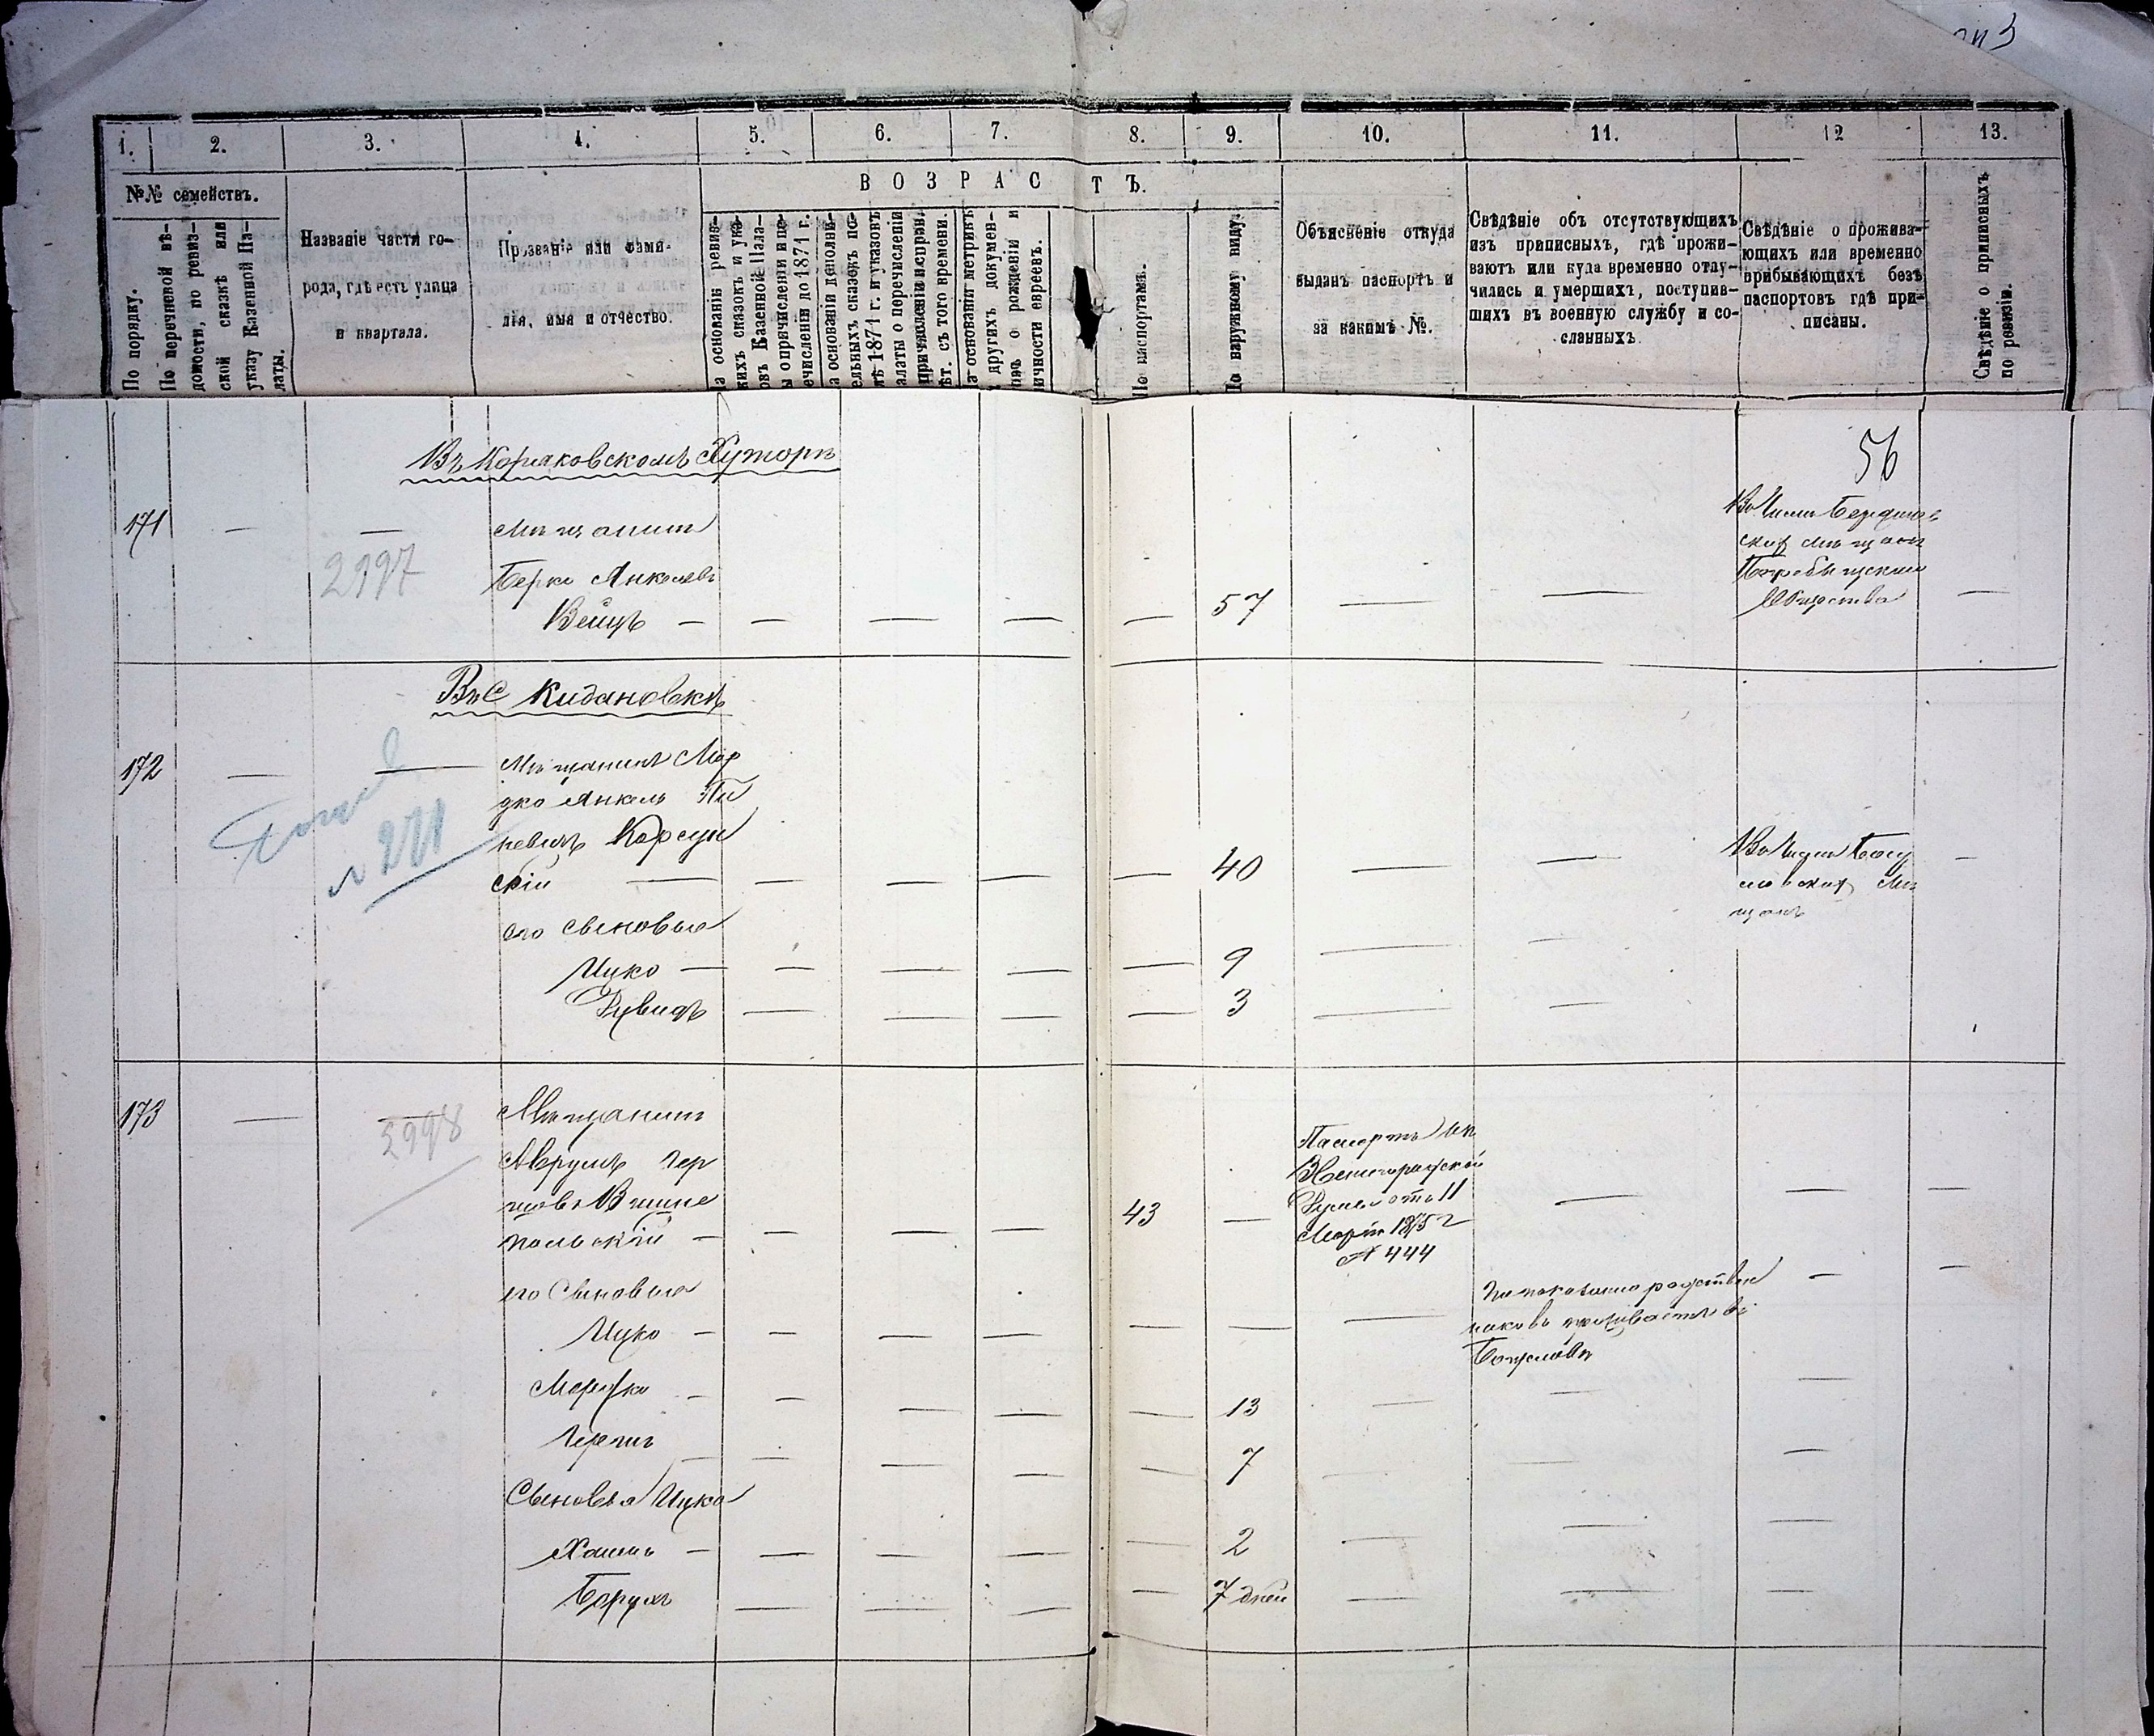 1.
2.
3.
4.
5.
6.
7.
8.
9.
10.
11.
12
13.
№№ семействъ.
По порядку.
По перечневой вѣ-
домости, по ревиз-
ской сказкѣ или
указу Казенной Па-
латы.
Названіе части го-
рода, гдѣ есть улица
и квартала.
Прозваніе или фами-
лія, имя и отчество.
ВОЗРАСТЪ.
а основаніи ревиз-
кихъ сказокъ и ука-
овъ Казенной Пала-
ы о причисленіи и пе-
ечисленіи до 1871 г.
а основаніи дополни-
ельныхъ сказокъ по-
лѣ 1871 г. и указовъ
алаты о перечисленіи
причисленіи и исправ.
ѣт. съ того времени.
а основаніи метрикъ
другихъ докумен-
овъ о рожденіи и
ичности евреевъ.
По паспортамъ.
По наружному виду.
Объясненіе откуда
выданъ паспортъ и
за какимъ №.
Свѣдѣніе объ отсутствующихъ
изъ приписныхъ, гдѣ прожи-
ваютъ или куда временно отлу-
чились и умершихъ, поступив-
шихъ въ военную службу и со-
сланныхъ
Свѣдѣніе о прожива-
ющихъ или временно
прибывающихъ безъ
паспортовъ гдѣ при-
писаны.
Свѣдѣніе о приписныхъ
по ревизіи.
56
Въ Корнаковскомъ Хуторѣ
171
2997
Мѣщанинъ
Берко Янкелевъ
Вейцъ
57
Въ Числѣ Бердичев
ских мѣщан
Погребыщскаго
Общества
Въ С Кидановкѣ
172
№ 271
Мѣщанинъ Мор
дко Янкель Пи
невичъ Корсун
скій
40
Въ Числѣ Богу
славских Мѣ
щанъ
его сыновья
Ицко
9
Рувинъ
3
173
2998
Мѣщанинъ
Аврумъ Гер
шовъ Вишне
польскій
43
Паспортъ из
Звенигородской
Думы отъ 11
Марта 1875 г
№ 444
его Сыновья
Ицко
По показанію родствен
никовъ проживаетъ въ
Богуславѣ
Мордко
13
Гершъ
7
Сыновья Ицка
Хаимъ
2
Борухъ
7 дней